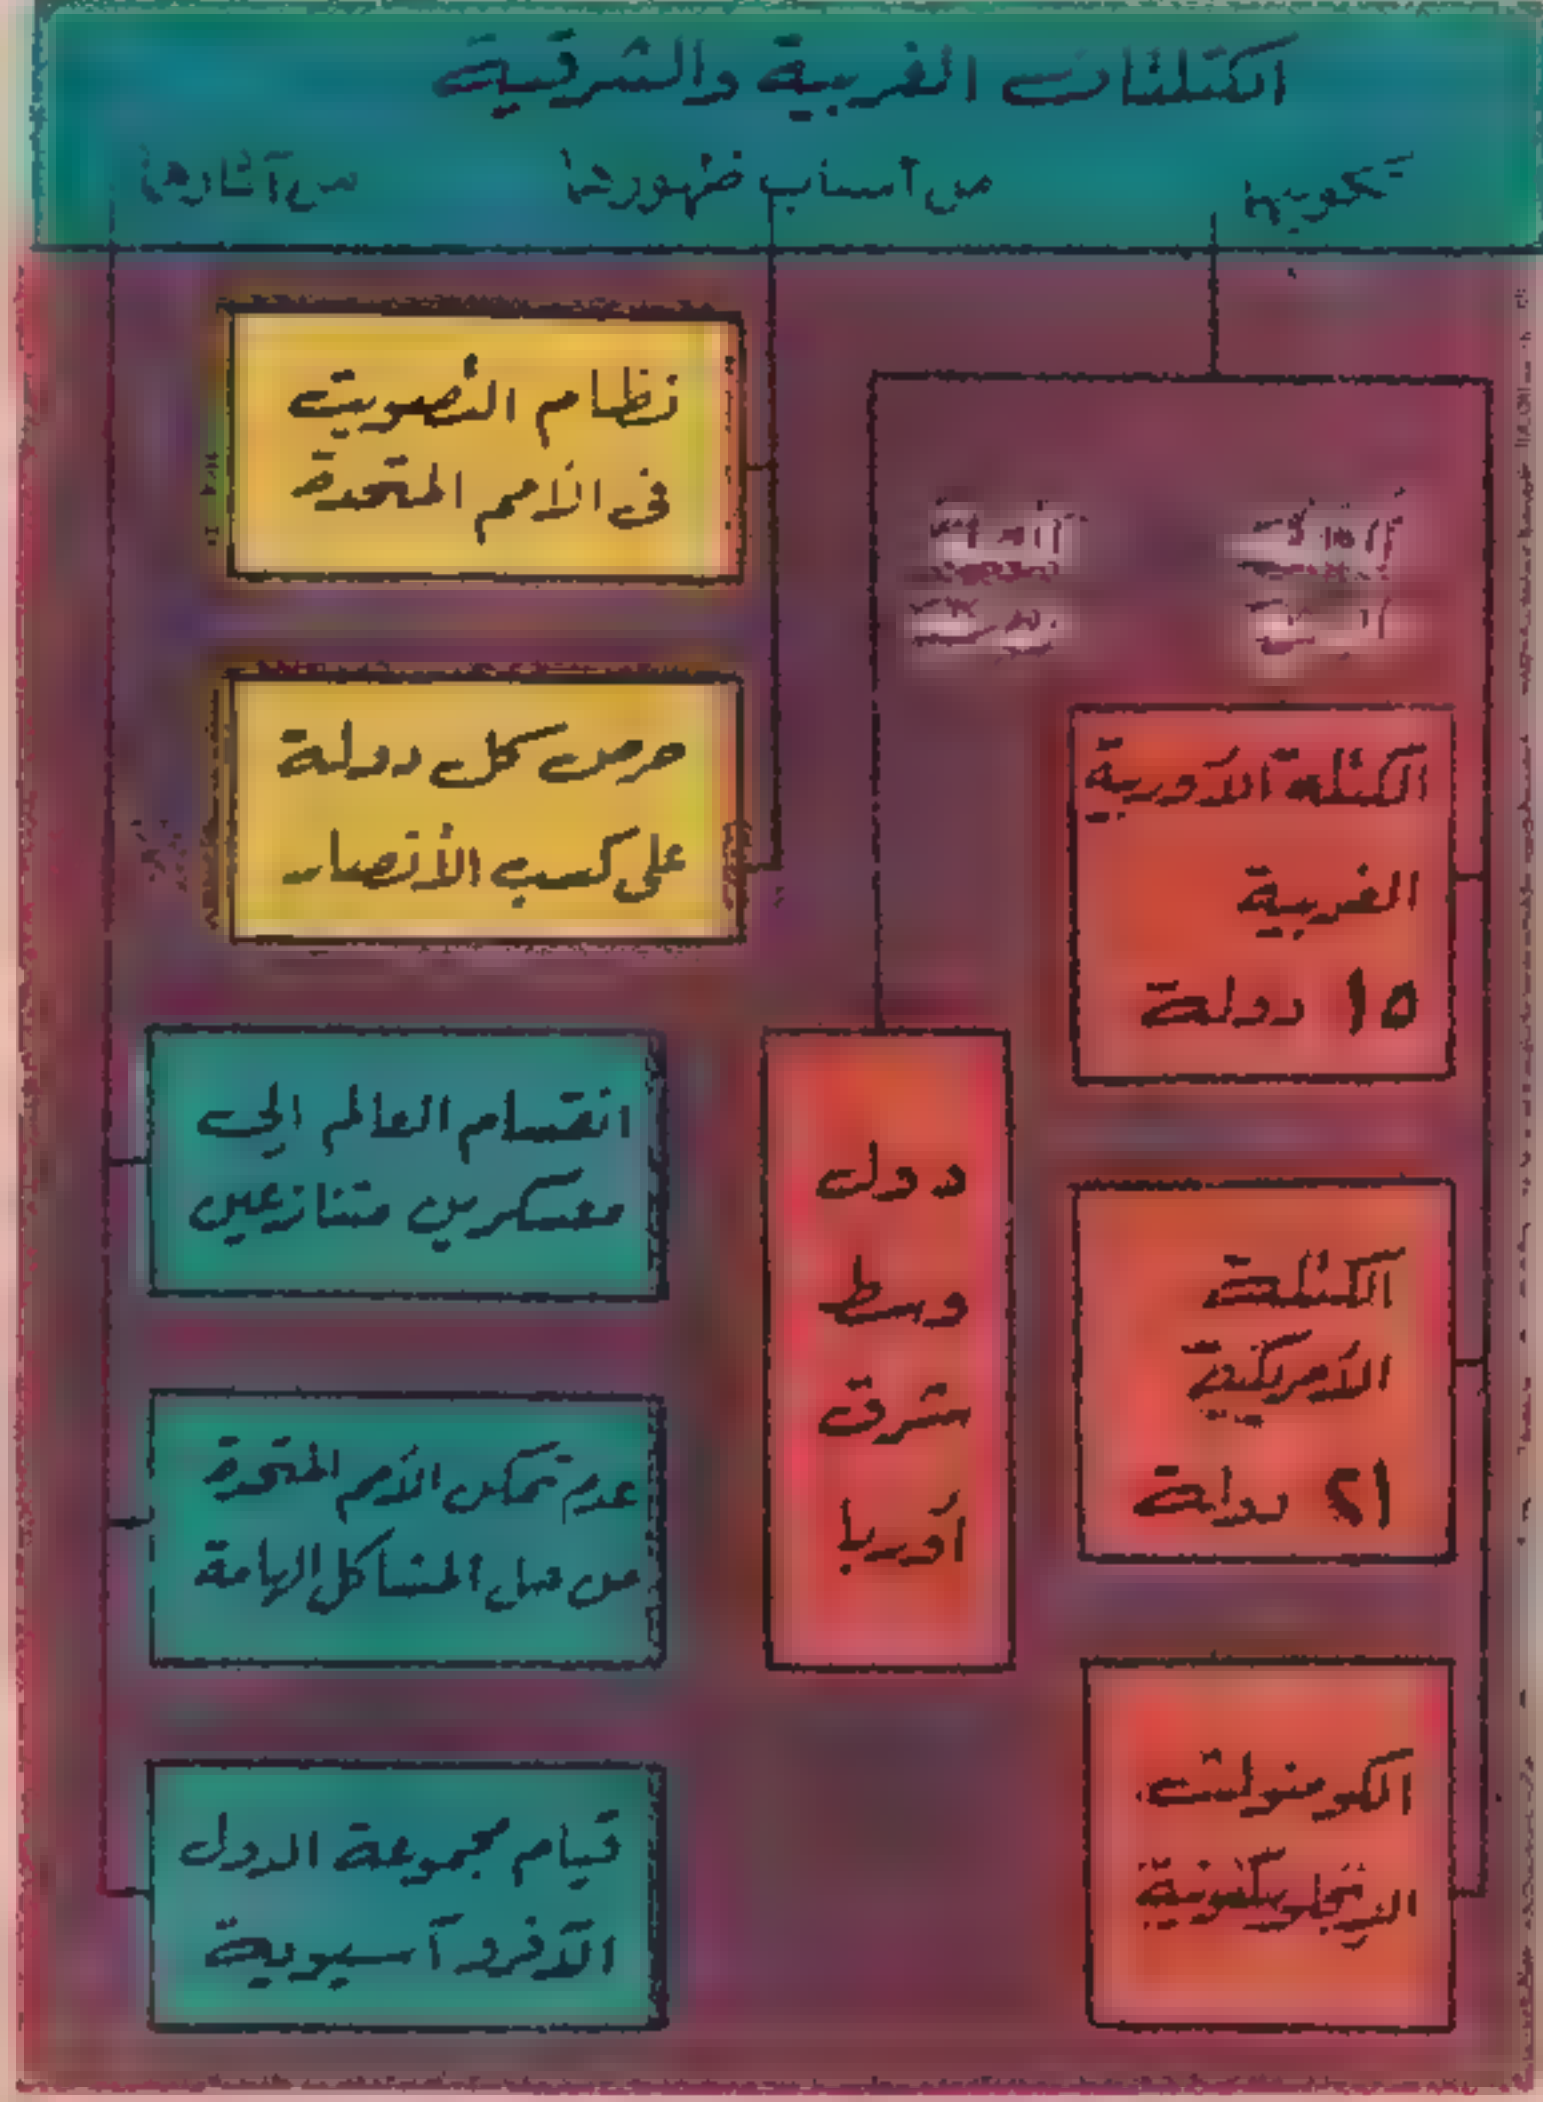 الكتلتان الغربية والشرقية
تكوينها
من أسباب ظهورها
من آثارها
الكتلة الأوربية
الغربية
١٥ دولة
الكتلة
الأمريكية
٢١ دولة
الكومنولث
الأنجلوسكسونية
دول
وسط
شرق
أوربا
نظام التصويت
فى الأمم المتحدة
حرص كل دولة
على كسب الأنصار
انقسام العالم إلى
معسكرين متنازعين
عدم تمكن الأمم المتحدة
من حل المشاكل الهامة
قيام مجموعة الدول
الأفروآسيوية